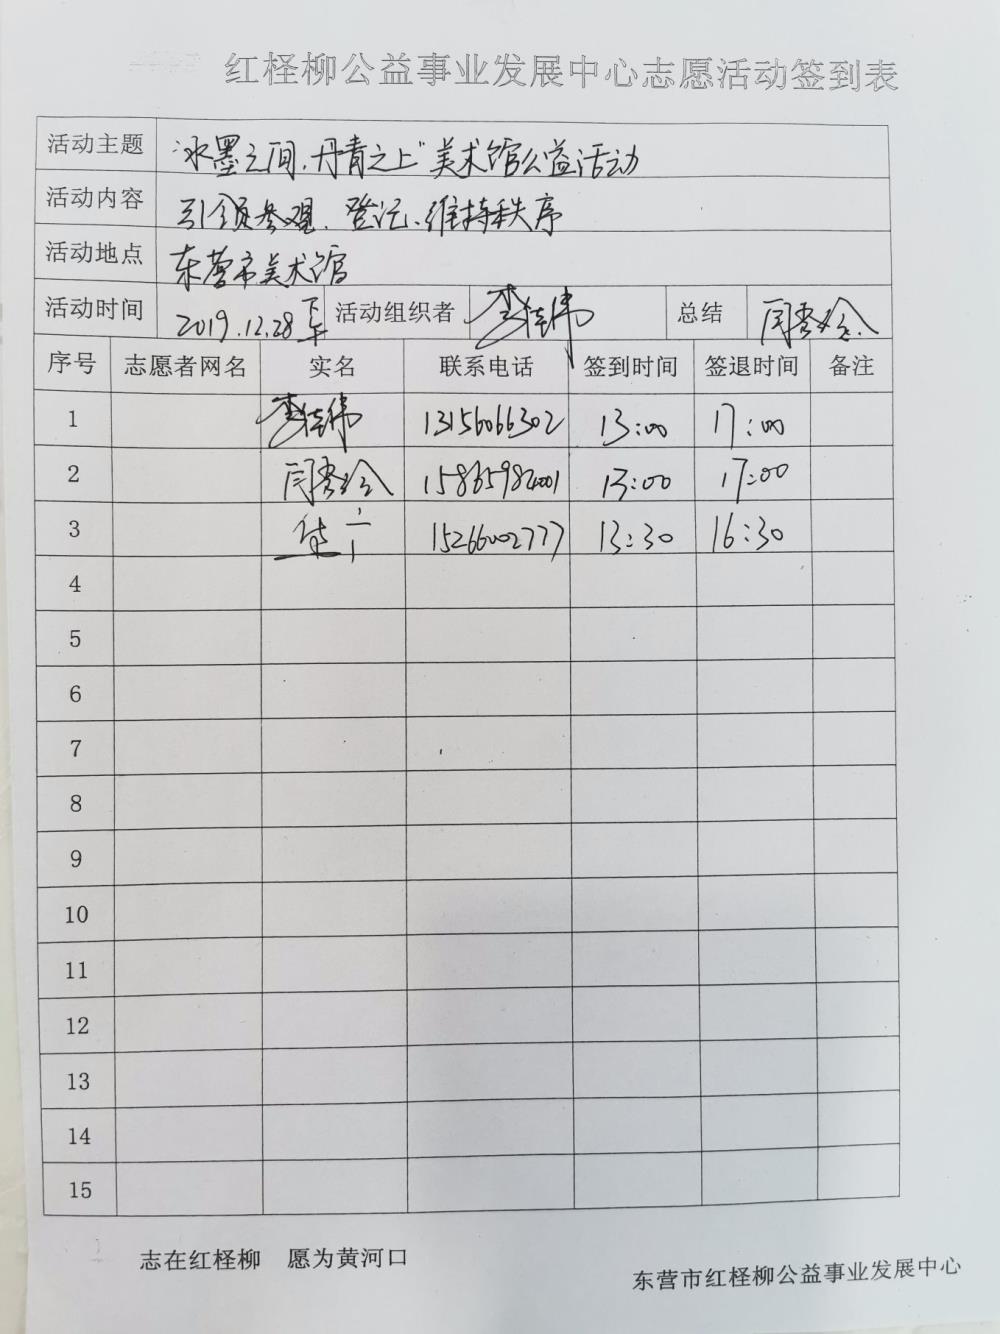 红柽柳公益事业发展中心志愿活动签到表
活动主题 "冰墨之间、丹青之上"美术馆公益活动
活动内容 引领参观、登记、维持秩序
活动地点 东营市美术馆
活动时间 2019.12.28 下午 活动组织者 李佳伟 总结
序号 志愿者网名 实名 联系电话 签到时间 签退时间 备注
1 李佳伟 13156066302 13:00 17:00
2 13:00 17:00
3 15266002777 13:30 16:30
4
5
6
7
8
9
10
11
12
13
14
15
志在红柽柳 愿为黄河口
东营市红柽柳公益事业发展中心